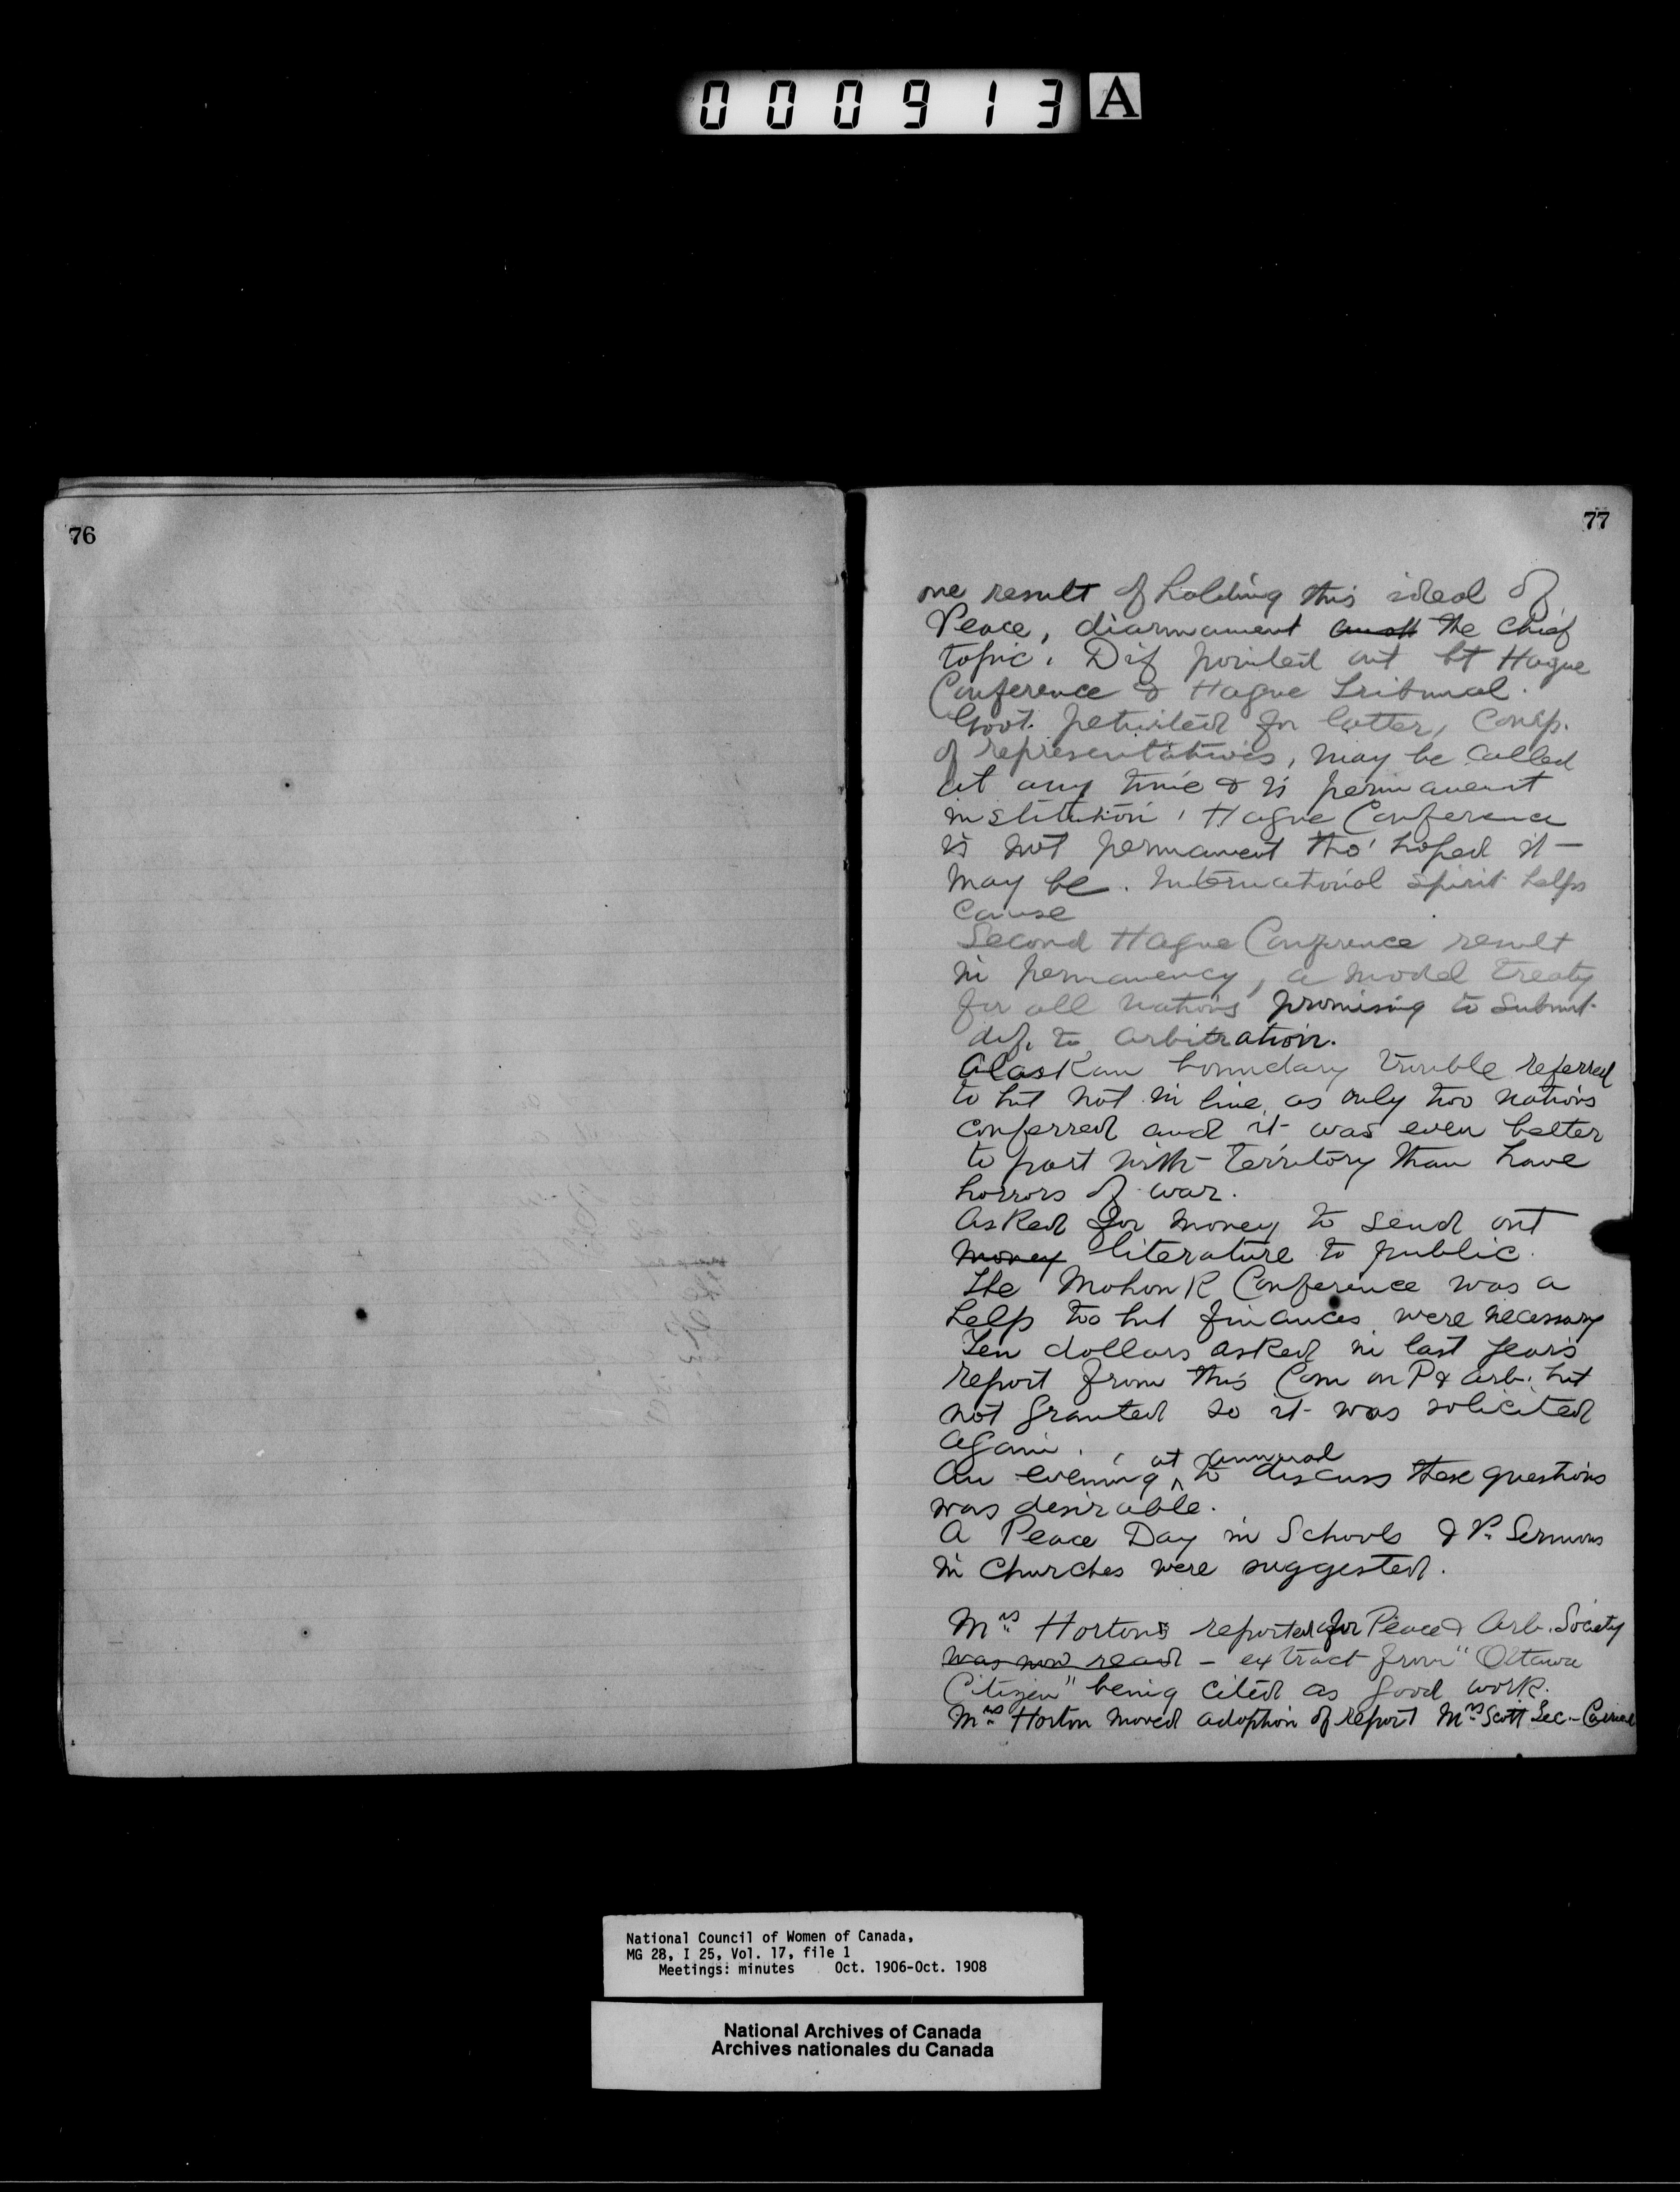 000913 A
76
77
one result of holding this ideal of
Peace, diarmament the chief
topic. Dif pointed out bt Hague
Conference & Hague Tribunal.
Govt. petitited for latter, Comp.
of representatives, may be called
at any time & is permanent
institution, Hague Conference
is not permanent tho' hoped it
may be. International spirit helps
cause
Second Hague Conference result
in permanency, a model treaty
for all nations promising to submit
dif. to arbitration.
Alaskan boundary trouble referred
to but not in line, as only two nations
conferred and it was even better
to part with territory than have
horrors of war.
Asked for money to send out
money literature to public.
The Mohonk Conference was a
help too but finances were necessary
Ten dollars asked in last year's
report from this Com on P & Arb. but
not granted so it was solicited
again.
at annual
An evening ^ to discuss these questions
was desirable.
A Peace Day in Schools & P. Sermons
in Churches were suggested.
Mrs Hortons reported for Peace & Arb. Society
was now read - extract from "Ottawa
Citizen" being cited as good work.
Mrs Horton moved adoption of report Mrs Scott Sec. - Carried
National Council of Women of Canada,
MG 28, I 25, Vol. 17, file 1
Meetings: minutes Oct. 1906-Oct. 1908
National Archives of Canada
Archives nationales du Canada